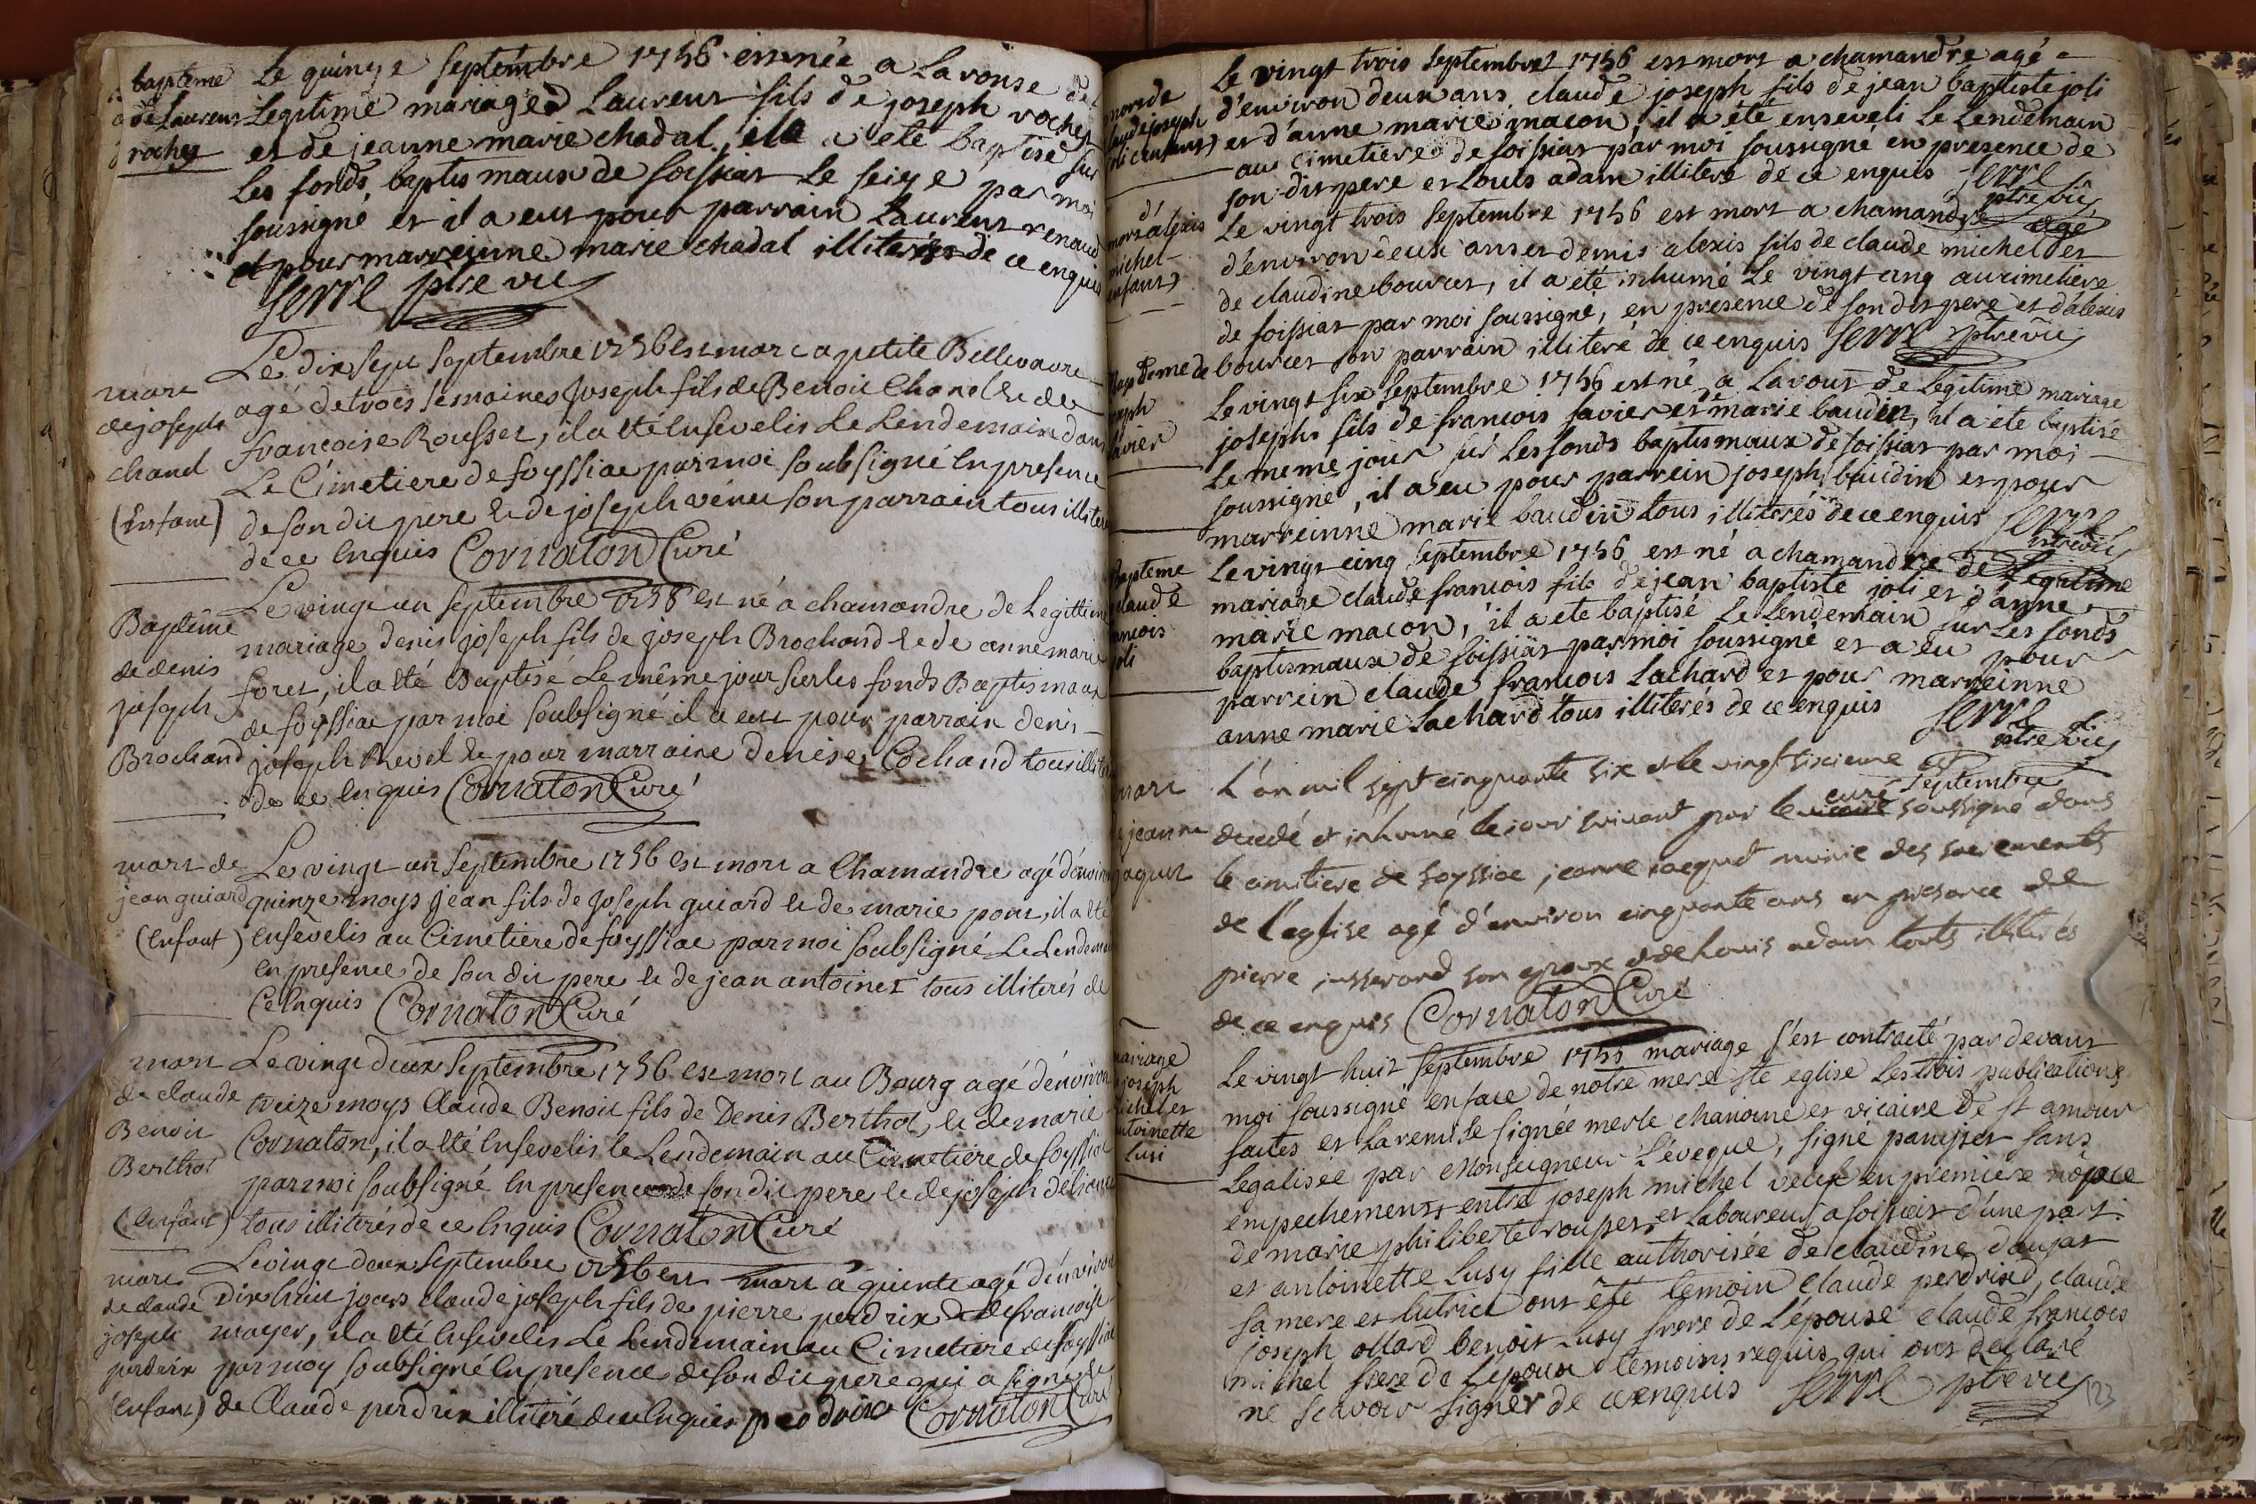 baptême
de Laurens
rochet
Le quinze septembre 1756 est née a Lavouse de
Legitime mariage Laurent fils de joseph rochet
et de jeanne marie chadal, il a été baptisé sur
Les fonds baptismaux de soissiat Le seize par moi
soussigné et il a eut pour parrain Laurent renaud
et pour marreinne marie chadal illiterés de ce enquis
Serre ptre vic
mort
de joseph
chanel
(Enfant)
Le dix sept septembre 1756 est mort a petite Bellevavre
agé de trois semaines Joseph fils de Benoit Chanel & de
francoise Rousset, il a été Ensevelis Le Lendemain dans
Le Cimetiere de soyssiac par moi soubsigné En presence
de son dit pere & de joseph vénu son parrain tous illiterés
de ce Enquis Cornaton Curé
Baptême
de denis
joseph
Brochand
Le vingt un septembre 1756 est né a chamandre de Legittime
mariage denis joseph fils de joseph Brochand & de anne marie
foret, il a été Baptisé Le même jour sur les fonds Baptismaux
de soyssiac par moi soubsigné il a eut pour parrain denis
joseph Revel & pour marraine denise Cochand tous illiterés
de ce Enquis Cornaton Curé
mort de
jean guiard
(Enfant)
Le vingt un septembre 1756 est mort a Chamandre agé d'environ
quinze moys jean fils de Joseph guiard & de marie pont, il a été
Ensevelis au Cimetiere de soyssiac par moi soubsigné Le Lendemain
en presence de son dit pere & de jean antoinet tous illiterés de
Ce Enquis Cornaton Curé
mort
de claude
Benoit
Berthot
(Enfant)
Le vingt deux septembre 1756 est mort au Bourg agé d'environ
treize moys Claude Benoit fils de Denis Berthot, & de marie
Cornaton, il a été Ensevelis le Lendemain au Cimetiere de soyssiac
par moi soubsigné En presence de son dit pere & de joseph
tous illiterés de ce Enquis Cornaton Curé
mort
de claude
joseph
perdrix
(Enfant)
Le vingt deux septembre 1756 est mort a quinte agé d'environ
Dix huit jours claude joseph fils de pierre perdrix & de francoise
mayer, il a été Ensevelis Le Lendemain au Cimetiere de soyssiac
par moy soubsigné En presence de son dit pere qui a signé &
de Claude perdrix illiteré de ce Enquis perdrix Cornaton Curé
mort de
claude joseph
joli (enfant)
Le vingt trois septembre 1756 est mort a chamandre agé
d'environ deux ans claude joseph fils de jean baptiste joli
et d'anne marie macon, il a été enseveli Le Lendemain
au cimetiere de soissiat par moi soussigné en presence de
son dit pere et Louis adam illiteré de ce enquis Serre
ptre vic
mort d'alexis
michel
(enfant)
Le vingt trois septembre 1756 est mort a chamandre agé
d'environ deux ans et demis alexis fils de claude michel et
de claudine bourcet, il a été inhumé Le vingt cinq au cimetiere
de soissiat par moi soussigné, en presence de son dit pere et d'alexis
bourcet son parrain illiteré de ce enquis Serre ptre vic
Baptême de
joseph
savier
Le vingt six septembre 1756 est né a Lavout de Legitime mariage
joseph fils de francois savier et marie baudin, il a été baptisé
Le meme jour sur Les fonds baptismaux de soissiat par moi
soussigné, il a eu pour parrein joseph baudin et pour
marreinne marie baudin tous illiterés de ce enquis Serre
ptre vic
Baptême
claude
francois
joli
Le vingt cinq septembre 1756 est né a chamandre de Legitime
mariage claude francois fils de jean baptiste joli et d'anne
marie macon, il a été baptisé Le Lendemain sur Les fonds
baptismaux de soissiat par moi soussigné et a eu pour
parrein claude francois Lachard et pour marreinne
anne marie Lachard tous illiterés de ce enquis Serre
ptre vic
mort
de jeanne
jaquet
L'an mil sept cinquante six et le vingt sixieme septembre est
decedé et inhumé le jour suivant par le curé soussigné dans
le cimitiere de soyssiac jeanne jacquet munie des sacrements
de l'eglise agé d'environ cinquante ans en presence de
pierre josserand son epoux et de Louis adam touts illiterés
de ce enquis Cornaton Curé
mariage
joseph
michel et
antoinette
Lusi
Le vingt huit septembre 1756 mariage s'est contracté par devant
moi soussigné en face de notre mere ste eglise Les trois publications
faites et La remise signée merle chanoine et vicaire de st amour
Legalisée par Monseigneur L'éveque, signé sans
empechement entre joseph michel veuf en premiere nopce
de marie philiberte rousset, et Laboureur a soissiat d'une part
et antoinette Lusy fille authorisée de claudine doujat
sa mere et tutrice ont été temoin claude perdrix, claude
joseph ollard benoit Lusy frere de L'épouse claude francois
michel frere de L'époux temoins requis qui ont declaré
ne scavoir signer de ce enquis Serre ptre vic
123